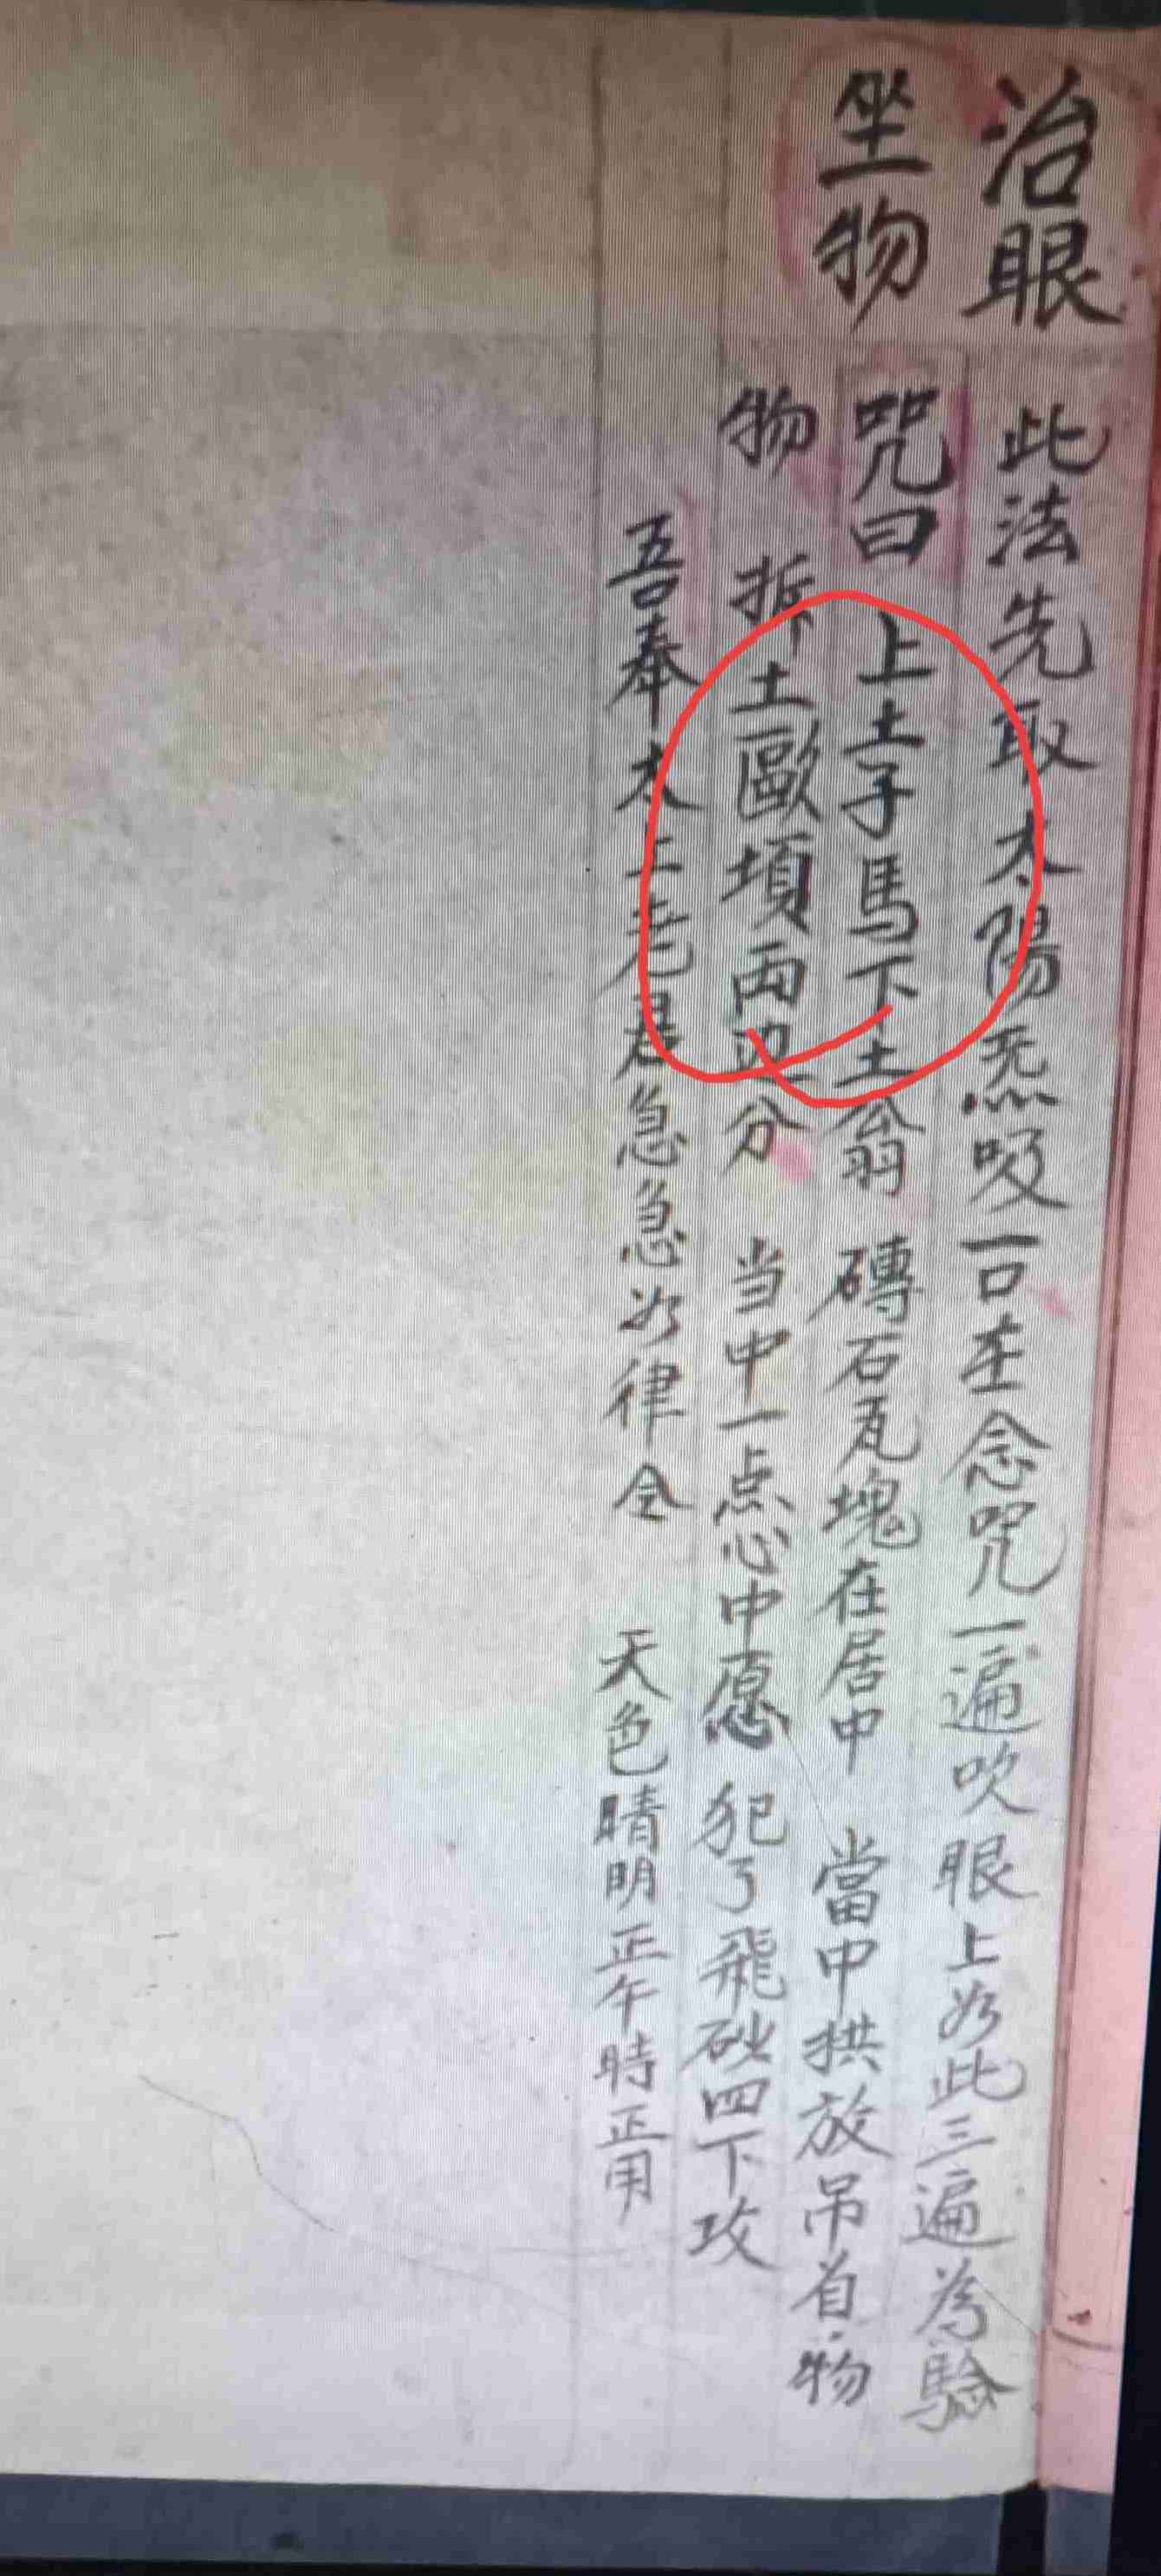 治眼 此法先取太陽炁吸一口在念咒一遍吹眼上如此三遍為驗
坐物 咒曰 上土子馬下土翁 磚石瓦塊在居中 當中拱放吊首物
物 拆土歐項両边分 当中一点心中愿 犯了飛砂四下攻
吾奉太上老君急急如律令 天色晴明正午時正用